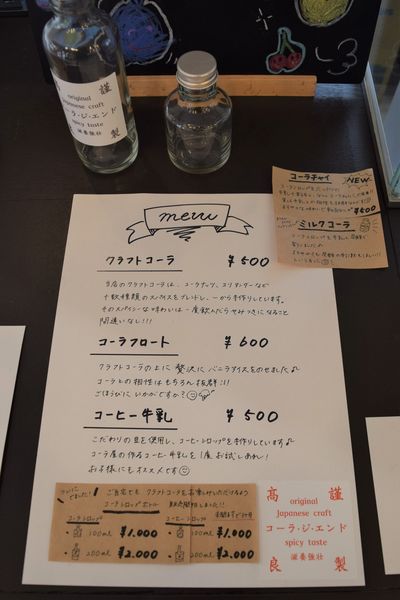 謹製
original
Japanese craft
コーラ・ジ・エンド
spicy taste
滋養強壮
コーラチャイ
NEW
¥500
ミルクコーラ
menu
クラフトコーラ ¥500
当店のクラフトコーラは、コーラナッツ、コリアンダーなど
十数種類のスパイスをブレンドし、一から手作りしています。
そのスパイシーな味わいは一度飲んだらやみつきになること
間違いなし!!!
コーラフロート ¥600
クラフトコーラの上に贅沢にバニラアイスをのせました♪
コーラとの相性はもちろん抜群!!
ごほうびにいかがですか?
コーヒー牛乳 ¥500
こだわりの豆を使用し、コーヒーシロップを手作りしています♪
コーラ屋の作るコーヒー牛乳を1度お試しあれ!
お子様にもオススメです
ご自宅でも クラフトコーラをお楽しみいただけるよう
コーラシロップ
100ml ¥1.000
200ml ¥2.000
コーヒーシロップ
100ml ¥1.000
200ml ¥2.000
高良
謹製
original
Japanese craft
コーラ・ジ・エンド
spicy taste
滋養強壮